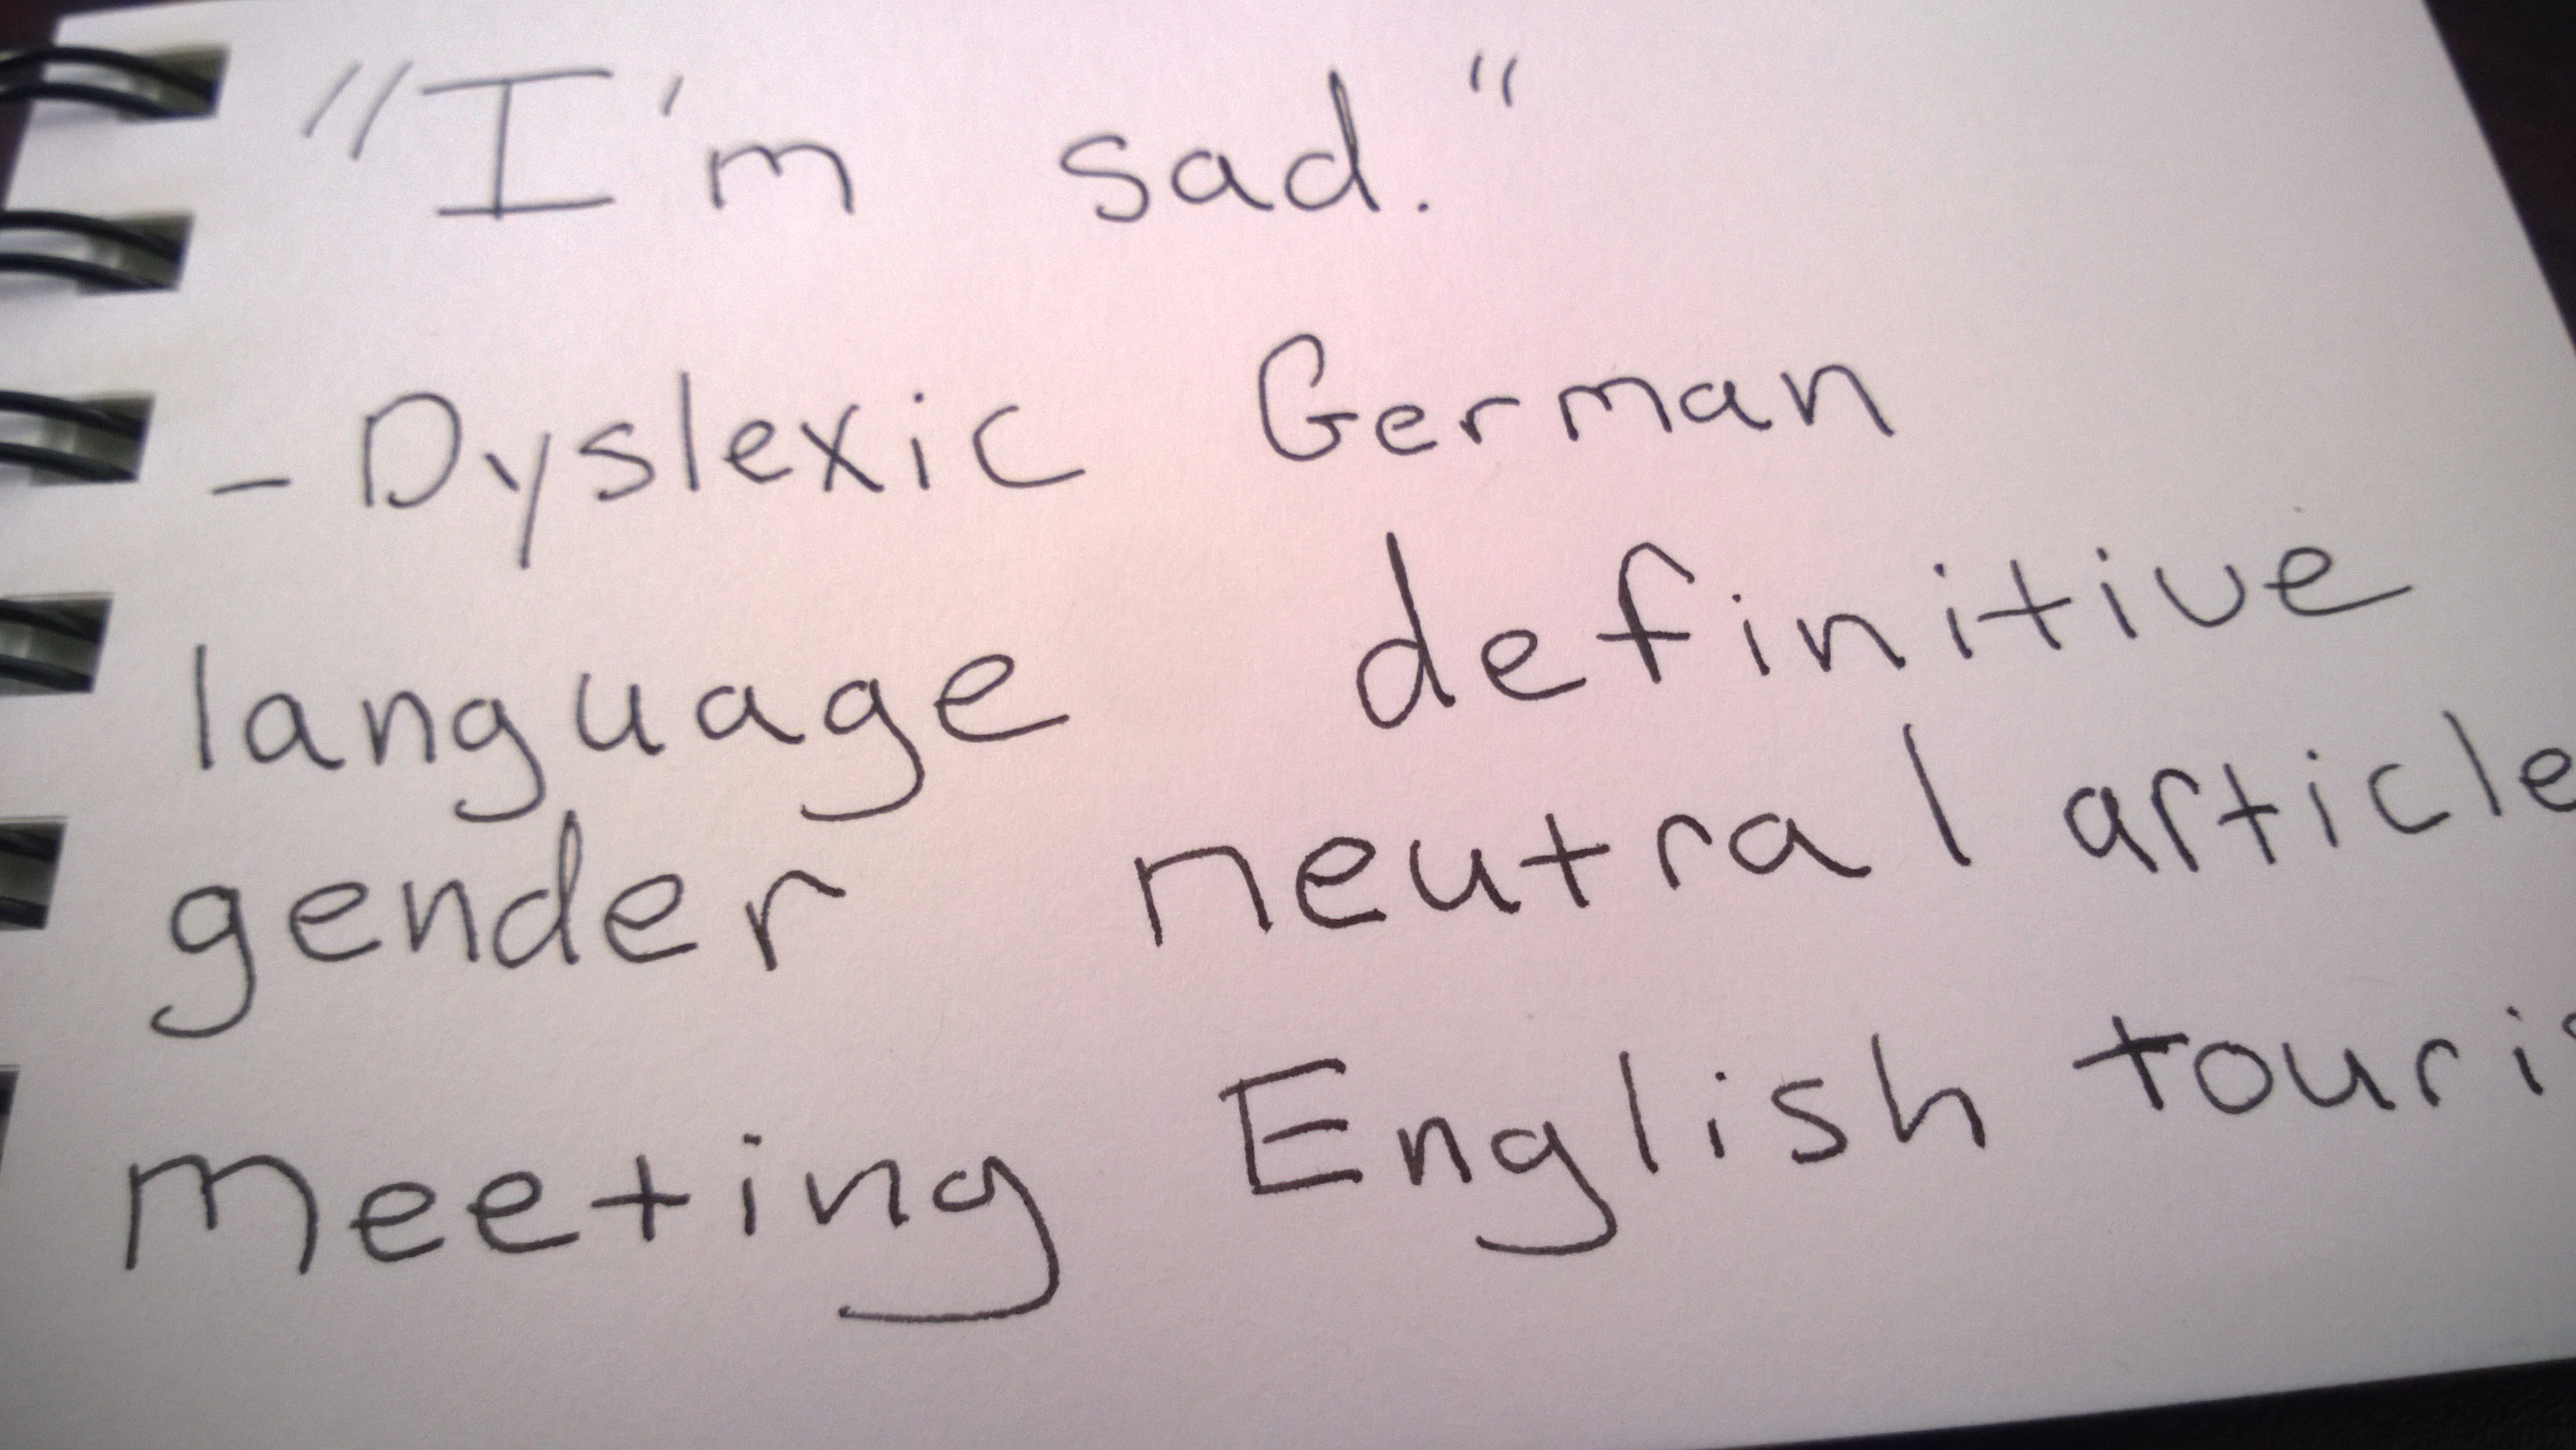 "I'm sad."
- Dyslexic German
language definitive
gender neutral article
meeting English touris